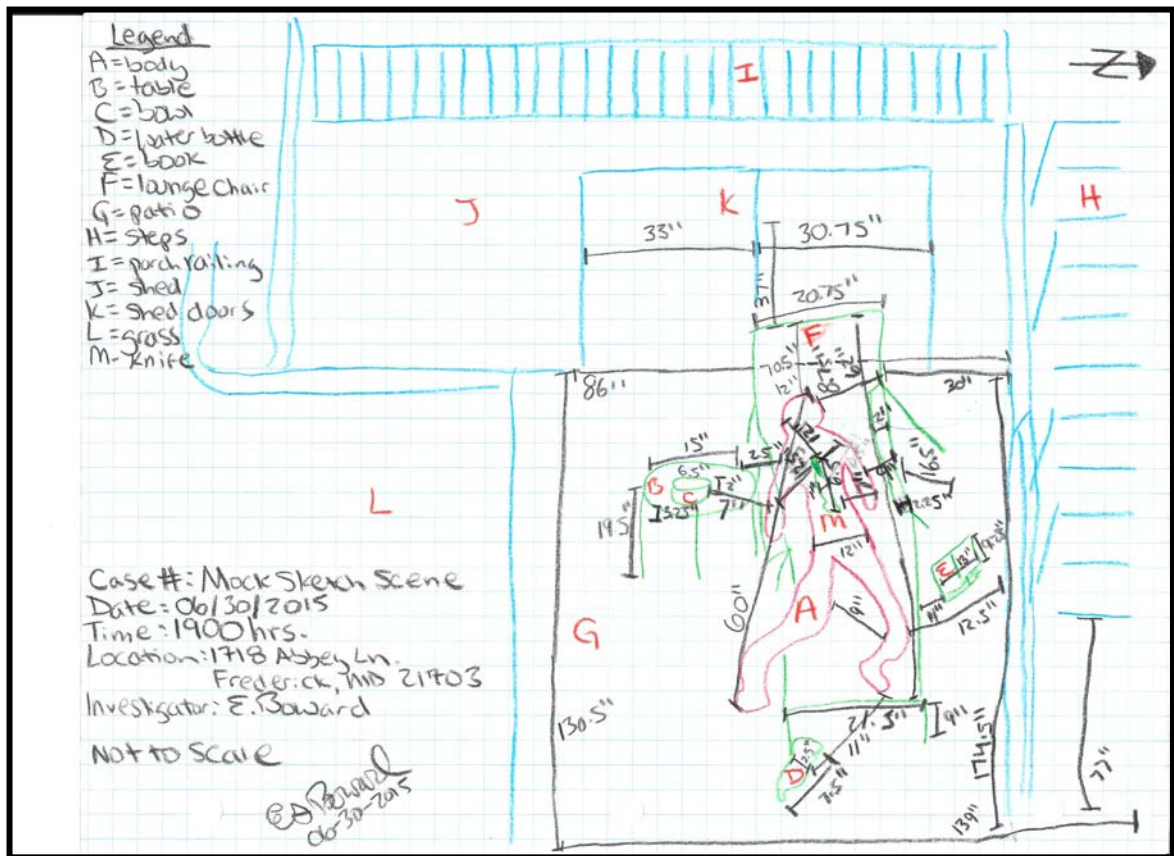 Legend
A=body
B=table
C=bowl
D=water bottle
E=book
F=lounge chair
G=patio
H=steps
I=porch railing
J=shed
K=shed doors
L=grass
M-Knife
N
I
H
J
K
33"
30.75"
37"
20.75"
F
70.5"
12"
86"
30"
15"
2.5"
6.5"
B
C
2"
7"
3.25"
19.5"
M
12"
16.5"
2.25"
E
13"
9.25"
11"
12.5"
L
G
A
60"
9"
130.5"
21.5"
9"
11"
D
2.5"
7.5"
174.5"
77"
139"
Case #: Mock Sketch Scene
Date: 06/30/2015
Time: 1900 hrs.
Location: 1718 Abbey Ln.
Frederick, MD 21703
Investigator: E. Boward
Not to Scale
EA Boward
06-30-2015